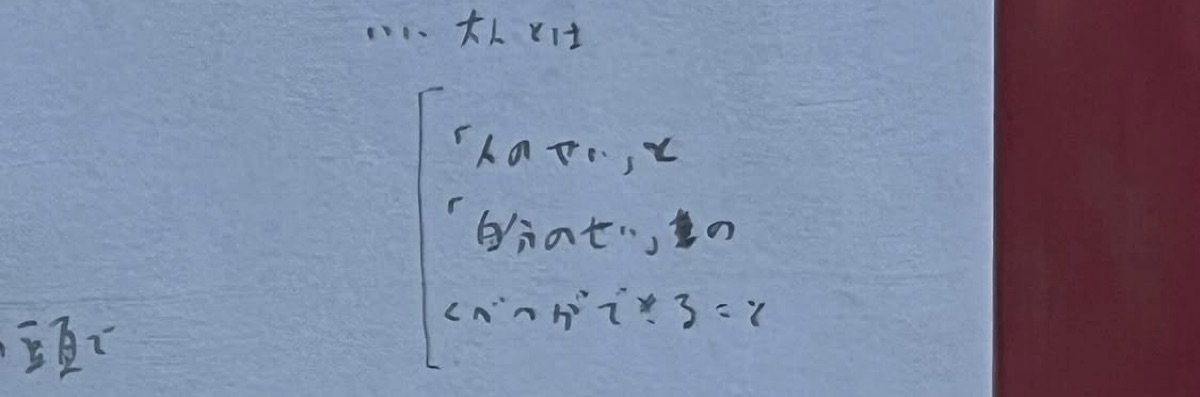 いい大人とは
「人のせい」と
「自分のせい」の
くべつができること
頭で